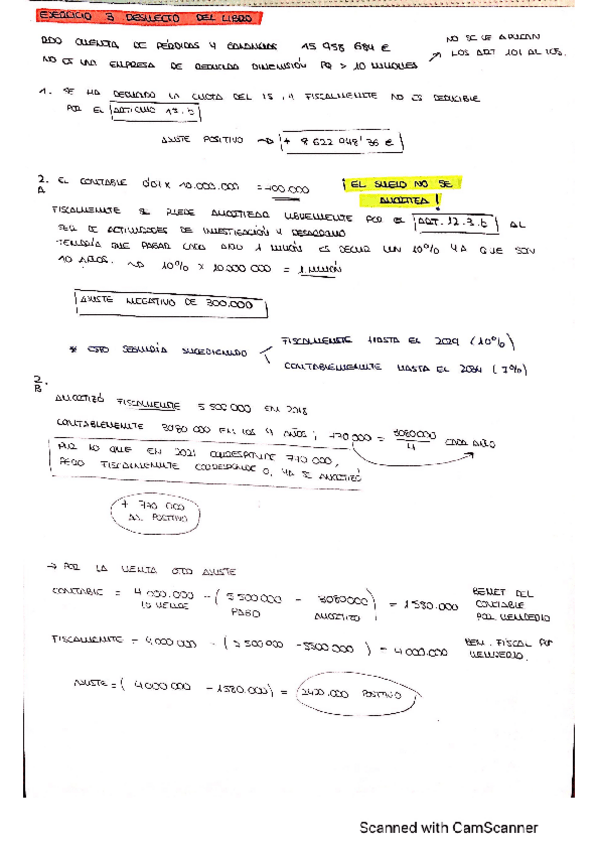 EJERCICIO 3 RESUELTO DEL LIBRO
RDO CUENTA DE PÉRDIDAS Y GANANCIAS 15 958 684 € NO SE LE APLICAN
NO ES UNA EMPRESA DE REDUCIDA DIMENSIÓN PQ > 10 MILLONES → LOS ART 101 AL 105.
1. SE HA DEDUCIDO LA CUOTA DEL IS, Y FISCALMENTE NO ES DEDUCIBLE
POR EL ARTICULO 15.b
AJUSTE POSITIVO → + 8 622 048'36 €
2. A EL CONTABLE 0'01 x 10.000.000 = 100.000 ¡EL SUELO NO SE
AMORTIZA!
FISCALMENTE SE PUEDE AMORTIZAR LIBREMENTE POR EL ART. 12.3.b AL
SER DE ACTIVIDADES DE INVESTIGACIÓN Y DESARROLLO
TENDRÍA QUE PAGAR CADA AÑO 1 MILLÓN ES DECIR UN 10% YA QUE SON
10 AÑOS. → 10% x 10.000 000 = 1 MILLÓN
AJUSTE NEGATIVO DE 300.000
* ESTO SEGUIRÍA SUCEDIENDO FISCALMENTE HASTA EL 2029 (10%)
CONTABLEMENTE HASTA EL (%)
2. B
AMORTIZÓ FISCALMENTE 5 500 000 EN 2018
CONTABLEMENTE 3080 000 EN LOS 4 AÑOS; 770000 = 3080000 / 4 CADA AÑO
POR LO QUE EN 2021 CORRESPONDE 770 000,
PERO FISCALMENTE CORRESPONDE 0, YA SE AMORTIZÓ
+ 770 000
AJ. POSITIVO
→ POR LA VENTA OTRO AJUSTE
CONTABLE = 4 000.000 - (5 500 000 - 3080000) = 1580.000 BENEF DEL
LO VENDE PAGO AMORTIZO CONTABLE
POR VENDERLO
FISCALMENTE - 4.000 000 - (5 500 000 - 5500 000) - 4 000.000 BEN. FISCAL POR
VENDERLO.
AJUSTE = (4000 000 - 1580.000) = 2420.000 POSITIVO
Scanned with CamScanner